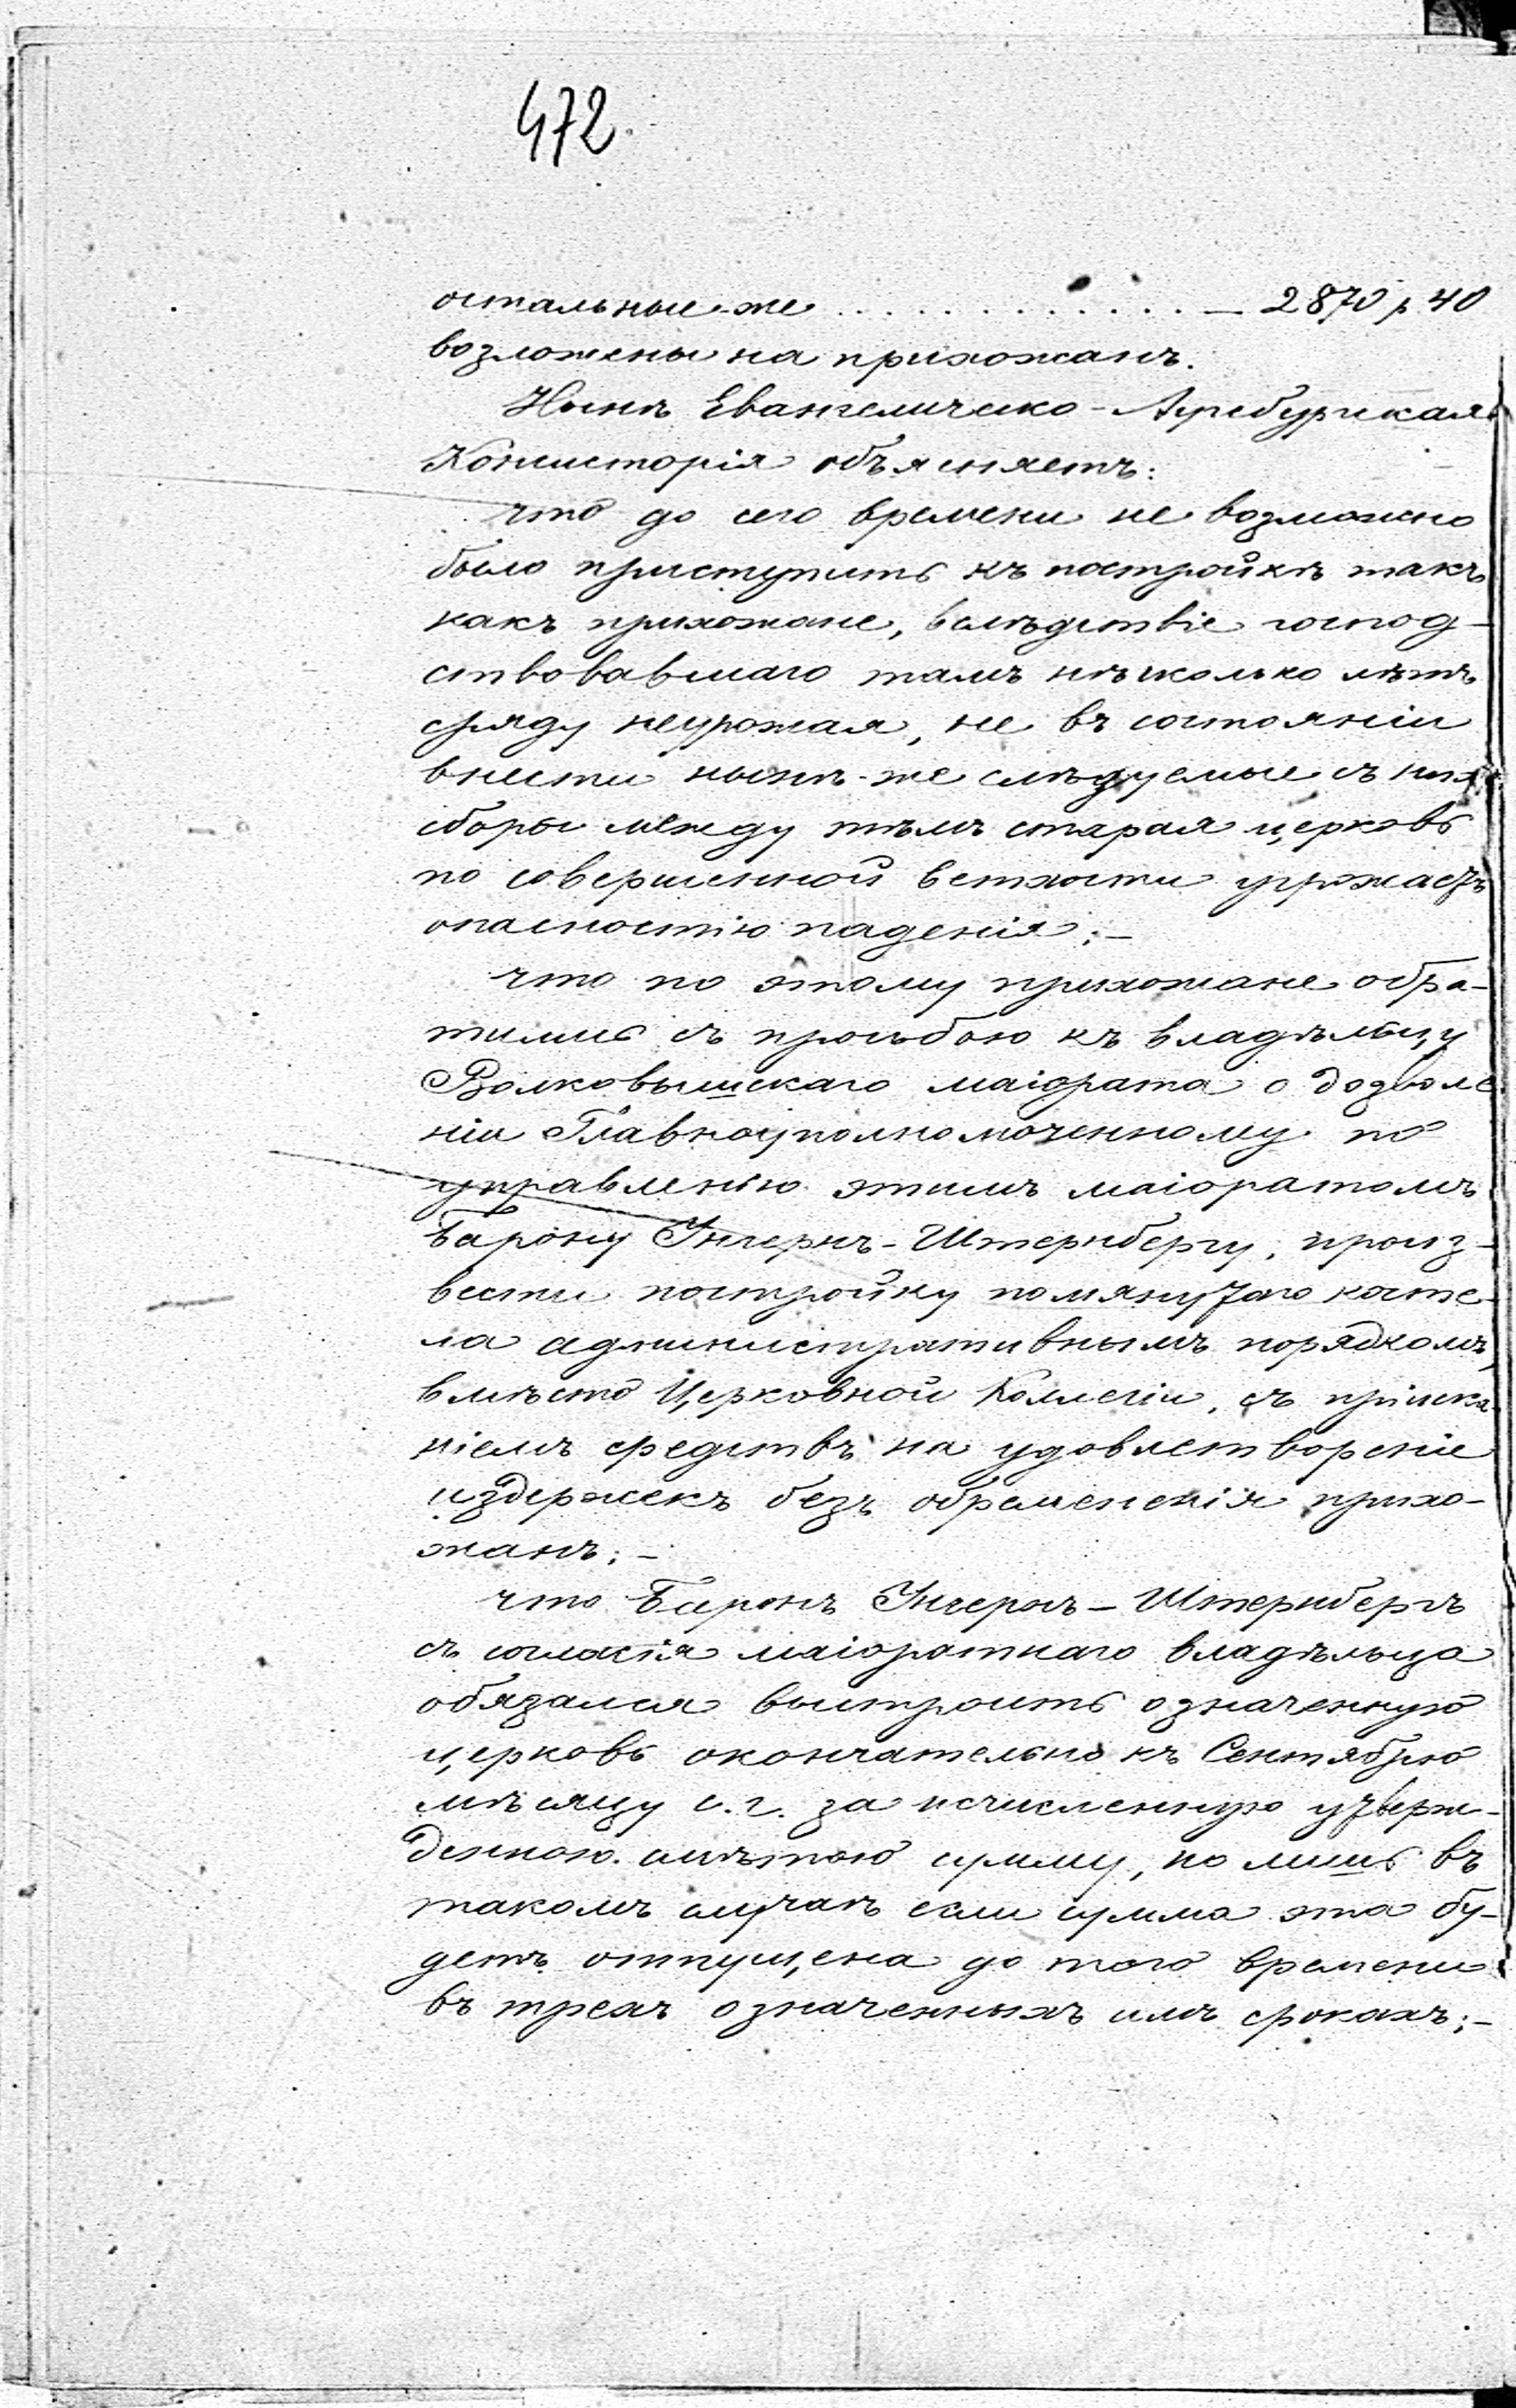 472
остальные-же . . . . . . . . . . . . — 2870 р 40
возложены на прихожанъ.
Нынѣ Евангелическо-Аугсбургская
Консисторія объясняетъ:
что до сего времени не возможно
было приступить къ постройкѣ такъ
какъ прихожане, вслѣдствіе господ-
ствовавшаго тамъ нѣсколько лѣтъ
сряду неурожая, не въ состояніи
внести нынѣ-же слѣдуемые съ нихъ
сборы между тѣмъ старая церковь
по совершенной ветхости угрожаетъ
опасностію паденія;—
что по этому прихожане обра-
тились съ просьбою къ владѣльцу
Волковышскаго маіората о дозволе-
ніи Главноуполномоченному по
управленію этимъ маіоратомъ
Барону Унгернъ-Штернбергу, произ-
вести постройку помянутаго косте-
ла административнымъ порядкомъ,
вмѣсто Церковной Коллегіи, съ пріиска-
ніемъ средствъ на удовлетвореніе
издержекъ безъ обремененія прихо-
жанъ;—
что Баронъ Унгернъ-Штернбергъ
съ согласія маіоратнаго владѣльца
обязался выстроить означенную
церковь окончательно къ Сентябрю
мѣсяцу с.г. за исчисленную утверж-
денною смѣтою сумму, но лишь въ
такомъ случаѣ если сумма эта бу-
детъ отпущена до того времени
въ трехъ означенныхъ имъ срокахъ;—